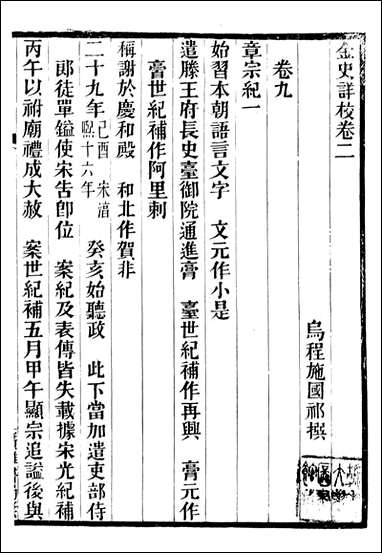 金史詳校卷二
烏程施國祁撰
卷九
章宗紀一
始習本朝語言文字　文元作小是
遣滕王府長史臺御院通進膏　臺世紀補作再興　膏元作
膏世紀補作阿里刺
稱謝於慶和殿　和北作賀非
二十九年己酉宋淳熙十六年　癸亥始聽政　此下當加遣吏部侍
郎徒單鎰使宋告卽位　案紀及表傳皆失載據宋光紀補
丙午以祔廟禮成大赦　案世紀補五月甲午顯宗追謚後與